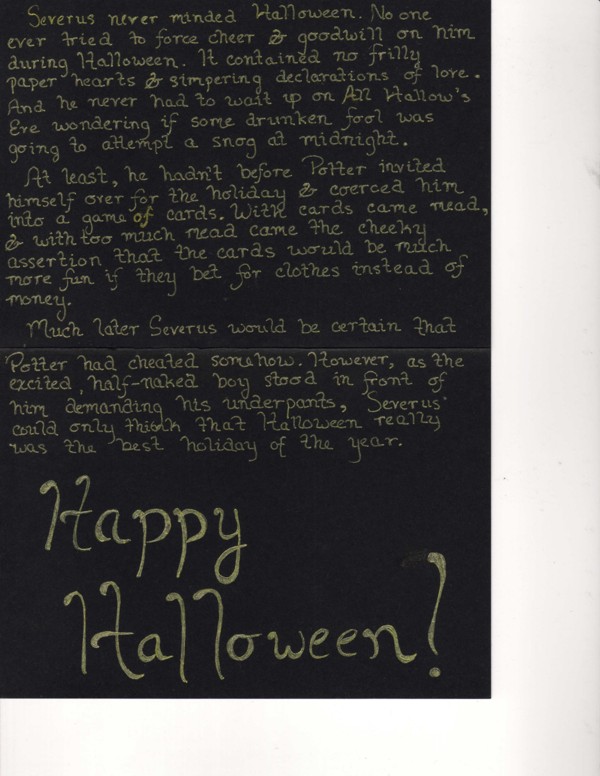 Severus never minded Halloween. No one
ever tried to force cheer & goodwill on him
during Halloween. It contained no frilly
paper hearts & simpering declarations of love.
And he never had to wait up on All Hallow's
Eve wondering if some drunken fool was
going to attempt a snog at midnight.
At least, he hadn't before Potter invited
himself over for the holiday & coerced him
into a game of cards. With cards came mead,
& with too much mead came the cheeky
assertion that the cards would be much
more fun if they bet for clothes instead of
money.
Much later Severus would be certain that
Potter had cheated somehow. However, as the
excited, half-naked boy stood in front of
him demanding his underpants, Severus
could only think that Halloween really
was the best holiday of the year.
Happy
Halloween!